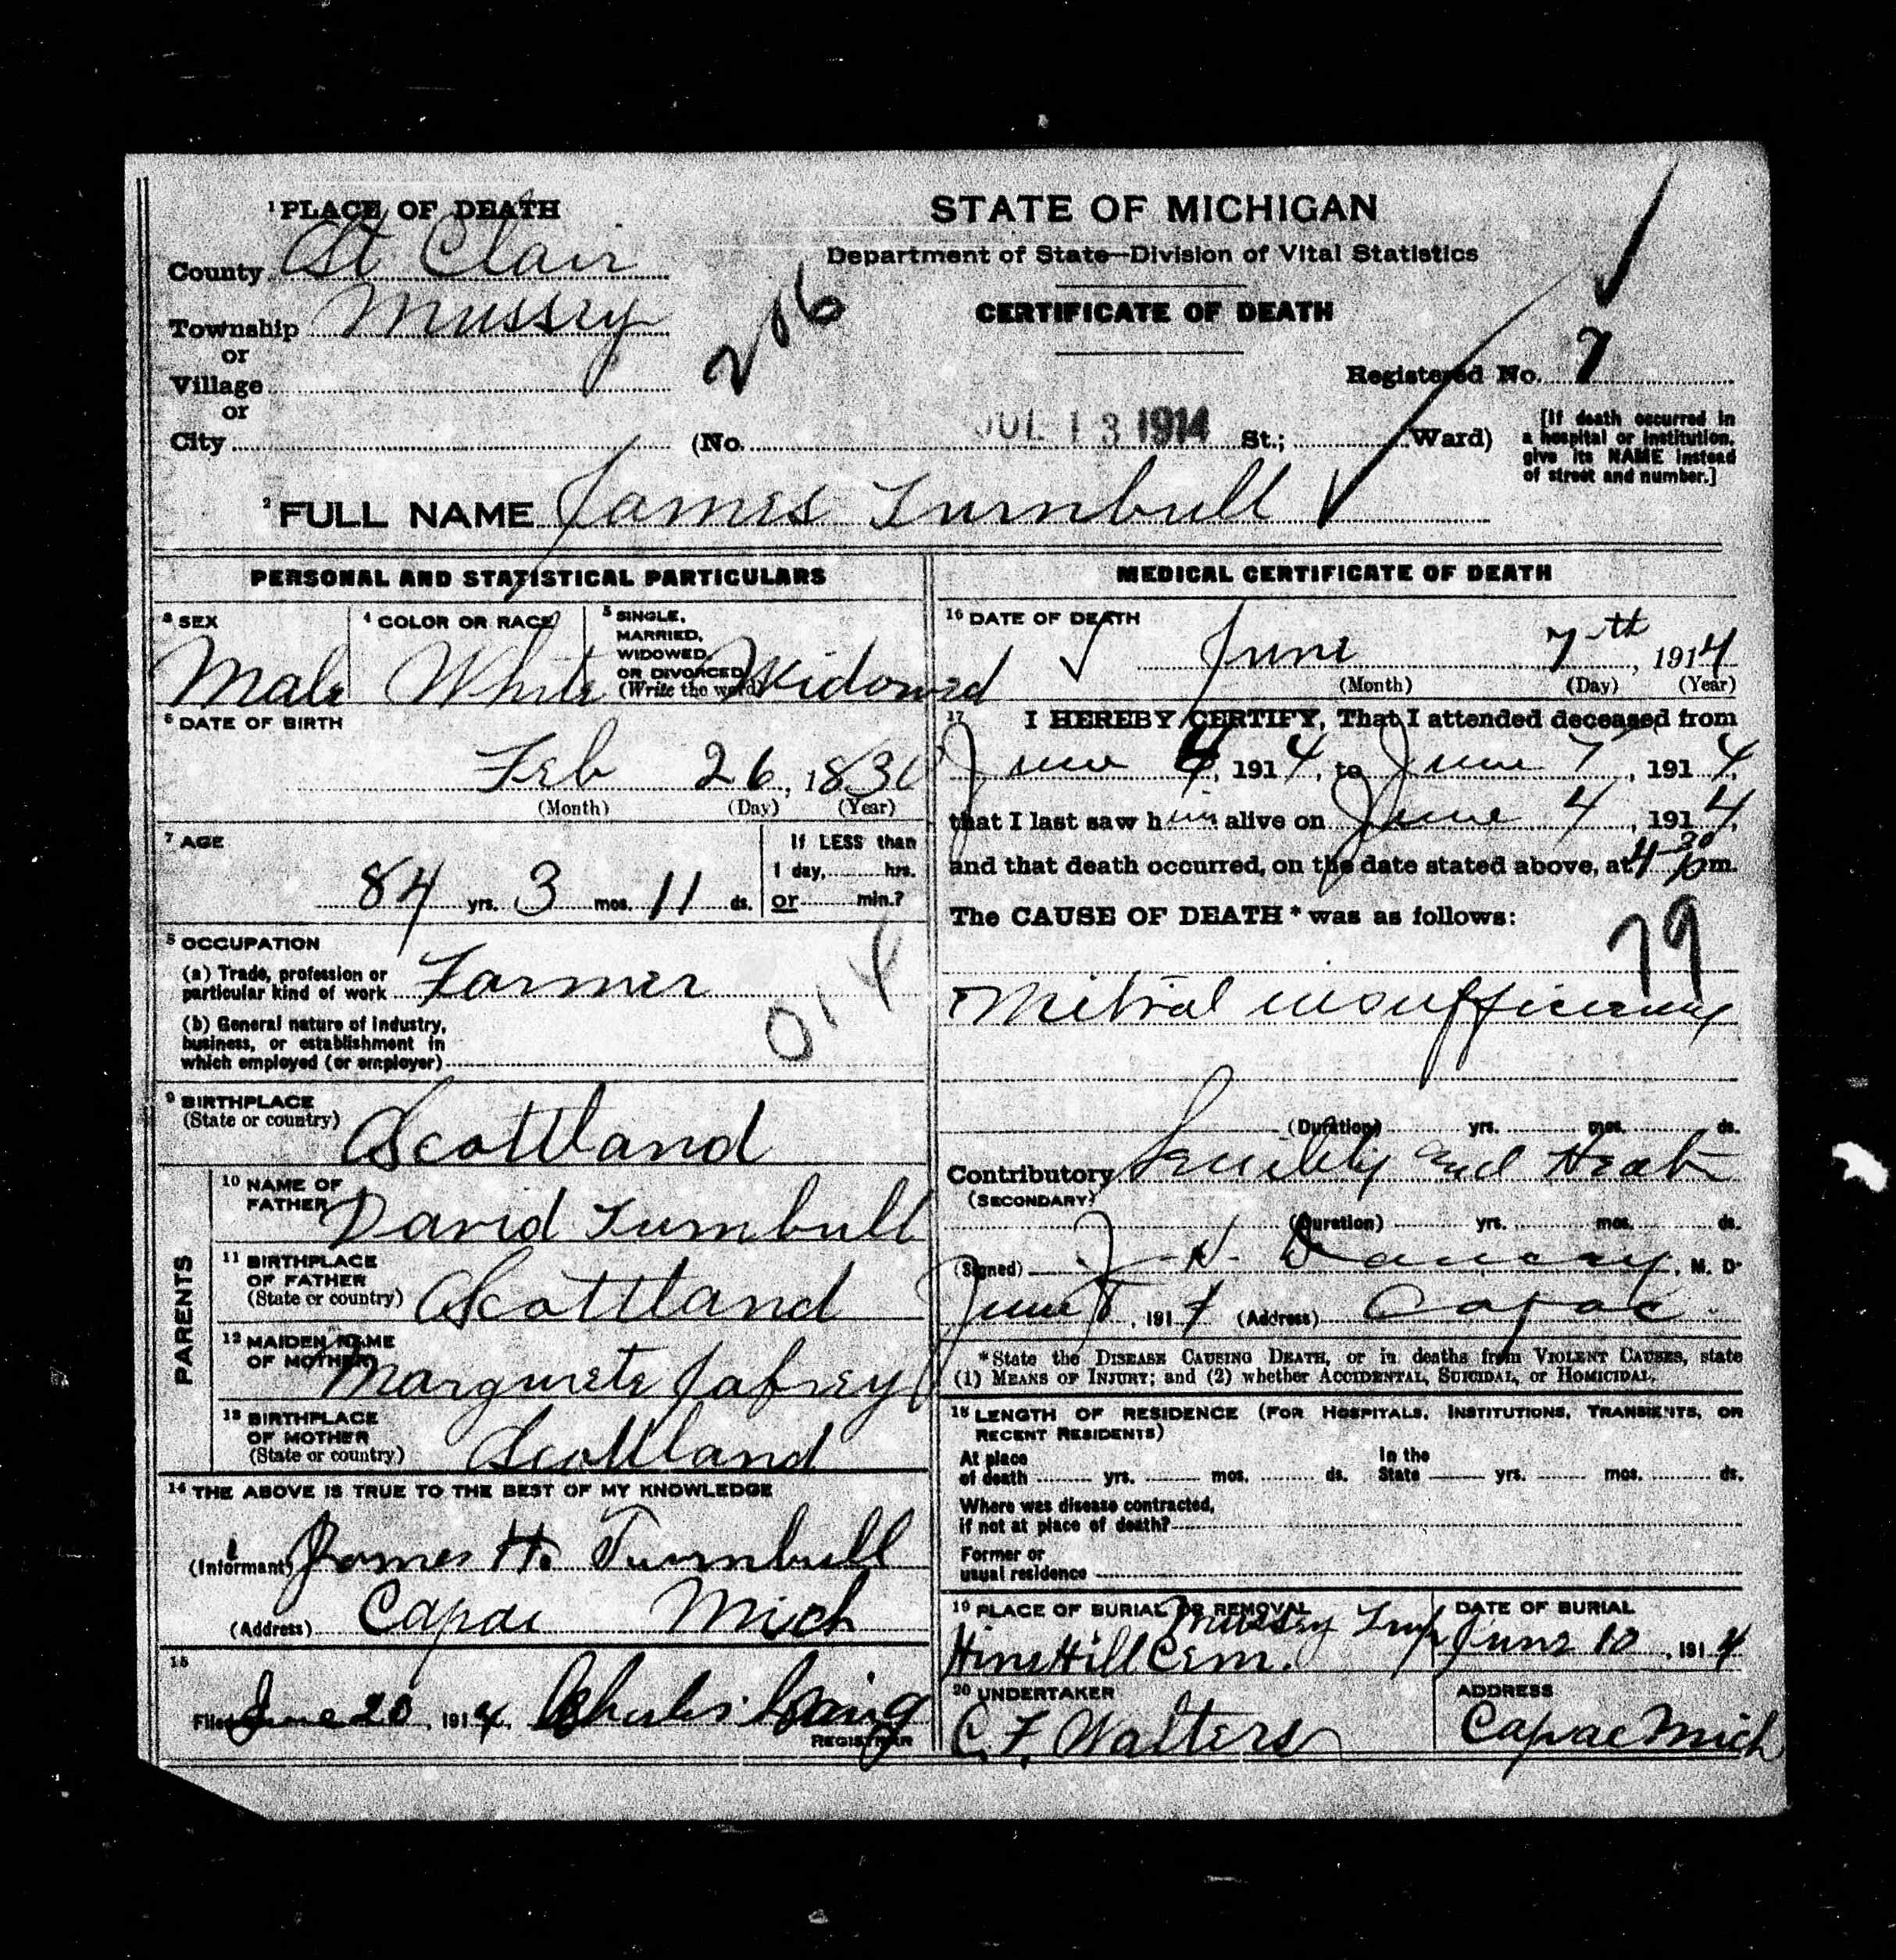 1 PLACE OF DEATH
STATE OF MICHIGAN
Department of State—Division of Vital Statistics
CERTIFICATE OF DEATH
County St Clair
Township Mussey
or
Village
or
City
206
Registered No. 7
(No. JUL 13 1914 St.; Ward)
[If death occurred in
a hospital or institution,
give its NAME instead
of street and number.]
2 FULL NAME James Turnbull
PERSONAL AND STATISTICAL PARTICULARS
3 SEX
Male
4 COLOR OR RACE
White
5 SINGLE,
MARRIED,
WIDOWED,
OR DIVORCED
(Write the word)
Widowed
6 DATE OF BIRTH
Feb 26, 1830
(Month) (Day) (Year)
7 AGE
84 yrs. 3 mos. 11 ds.
If LESS than
1 day, hrs.
or min.?
8 OCCUPATION
(a) Trade, profession or
particular kind of work Farmer
(b) General nature of industry,
business, or establishment in
which employed (or employer)
014
9 BIRTHPLACE
(State or country) Scottland
PARENTS
10 NAME OF
FATHER David Turnbull
11 BIRTHPLACE
OF FATHER
(State or country) Scottland
12 MAIDEN NAME
OF MOTHER Marguete Jafrey
13 BIRTHPLACE
OF MOTHER
(State or country) Scottland
14 THE ABOVE IS TRUE TO THE BEST OF MY KNOWLEDGE
(Informant) James H. Turnbull
(Address) Capac Mich
15
Filed June 20, 1914 Charles Craig
REGISTRAR
MEDICAL CERTIFICATE OF DEATH
16 DATE OF DEATH
June 7th, 1914
(Month) (Day) (Year)
17 I HEREBY CERTIFY, That I attended deceased from
June 4, 1914, to June 7, 1914,
that I last saw him alive on June 4, 1914,
and that death occurred, on the date stated above, at 4 30 p m.
The CAUSE OF DEATH * was as follows:
79
Mitral insufficiency
(Duration) yrs. mos. ds.
Contributory Senility and Heat
(SECONDARY)
(Duration) yrs. mos. ds.
(Signed) , M. D.
June 8, 1914 (Address) Capac
*State the DISEASE CAUSING DEATH, or in deaths from VIOLENT CAUSES, state
(1) MEANS OF INJURY; and (2) whether ACCIDENTAL, SUICIDAL, or HOMICIDAL.
18 LENGTH OF RESIDENCE (FOR HOSPITALS, INSTITUTIONS, TRANSIENTS, OR
RECENT RESIDENTS)
At place
of death yrs. mos. ds.
In the
State yrs. mos. ds.
Where was disease contracted,
if not at place of death?
Former or
usual residence
19 PLACE OF BURIAL OR REMOVAL
Mussey Twp
Hine Hill Cem.
DATE OF BURIAL
June 10, 1914
20 UNDERTAKER
C. F. Walters
ADDRESS
Capac Mich